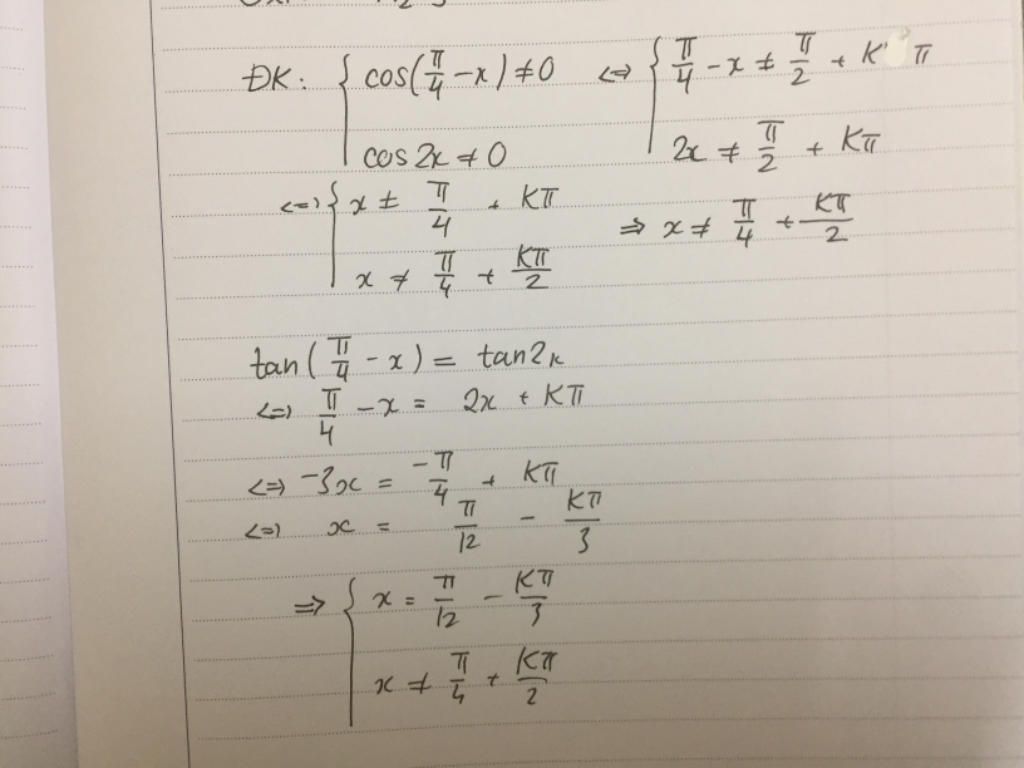 ĐK: { cos(π/4 - x) ≠ 0 <=> { π/4 - x ≠ π/2 + Kπ
cos 2x ≠ 0 2x ≠ π/2 + Kπ
<=> { x ≠ π/4 + Kπ
x ≠ π/4 + Kπ/2 => x ≠ π/4 + Kπ/2
tan(π/4 - x) = tan2x
<=> π/4 - x = 2x + Kπ
<=> -3x = -π/4 + Kπ
<=> x = π/12 - Kπ/3
=> { x = π/12 - Kπ/3
x ≠ π/4 + Kπ/2